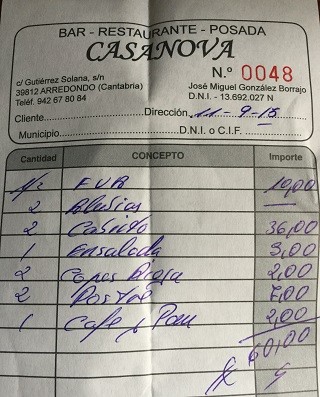 BAR - RESTAURANTE - POSADA
CASANOVA
N.º 0048
c/ Gutiérrez Solana, s/n
39812 ARREDONDO (Cantabria)
Teléf. 942 67 80 84
José Miguel González Borrajo
D.N.I. - 13.692.027 N
Cliente Dirección 11-9-15
Municipio D.N.I. o C.I.F.
Cantidad CONCEPTO Importe
10,00
2
2 Cabrito 36,00
1 Ensalada 3,00
2 Copas Rioja 2,00
2 Postre 7,00
1 Cafe y Pan 2,00
60,00